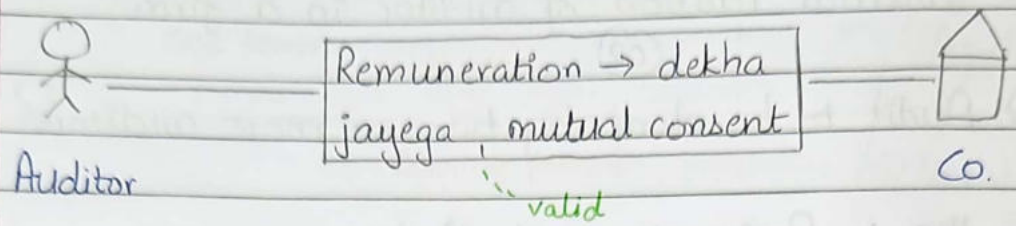 Remuneration → dekha
jayega, mutual consent
Auditor
Co.
valid